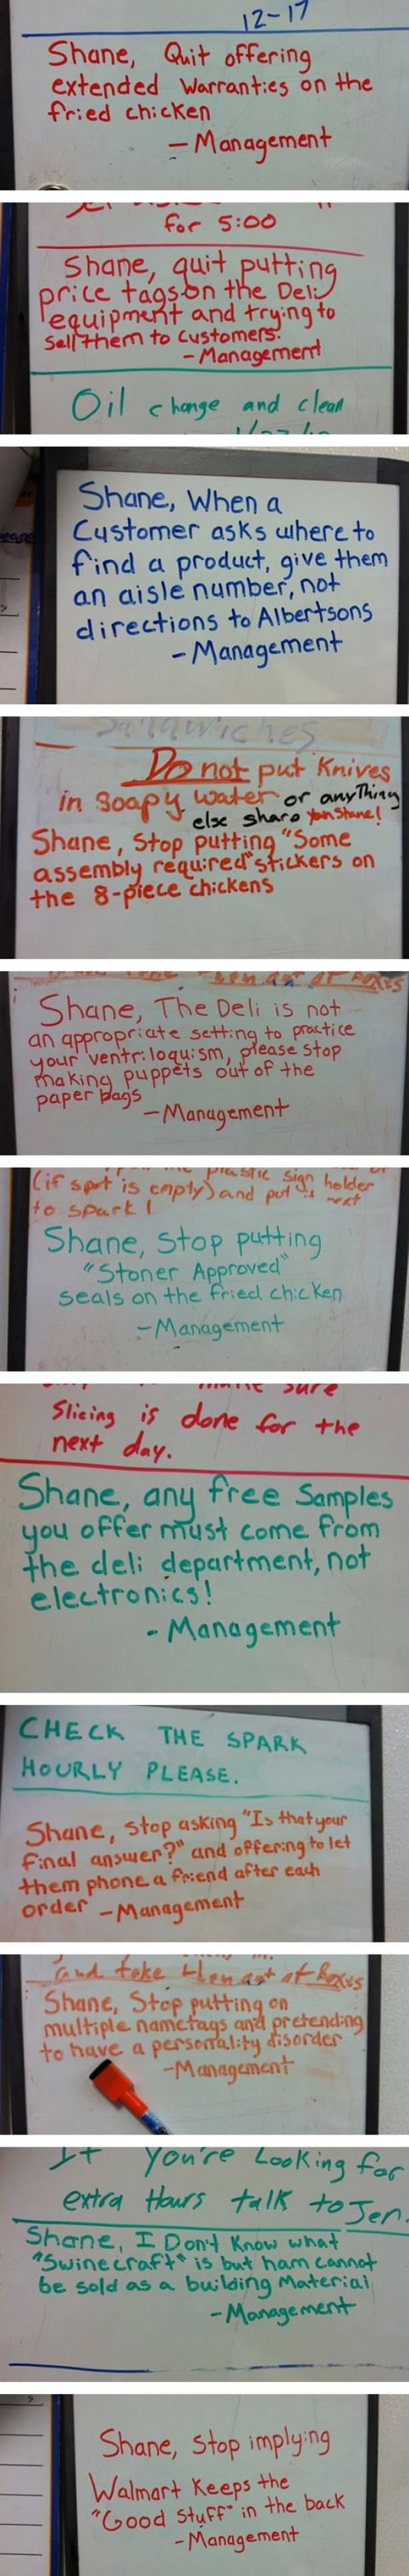 12-17
Shane, Quit offering
extended Warranties on the
fried chicken
- Management
for 5:00
Shane, quit putting
price tags on the Deli
equipment and trying to
Sell them to customers.
- Management
Oil change and clean
Shane, When a
Customer asks where to
find a product, give them
an aisle number, not
directions to Albertsons
- Management
Sandwiches
Do not put Knives
in Soapy water or anything
else sharp Yea Shane!
Shane, Stop putting "Some
assembly required" stickers on
the 8-piece chickens
Shane, The Deli is not
an appropriate setting to practice
your ventriloquism, please stop
making puppets out of the
paper bags
- Management
plastic sign holder
(if spot is empty) and put in next
to spark!
Shane, Stop putting
"Stoner Approved"
seals on the fried chicken
- Management
make sure
Slicing is done for the
next day.
Shane, any free Samples
you offer must come from
the deli department, not
electronics!
- Management
CHECK THE SPARK
HOURLY PLEASE.
Shane, stop asking "Is that your
final answer?" and offering to let
them phone a friend after each
order - Management
and take them out of Boxes
Shane, Stop putting on
multiple nametags and pretending
to have a personality disorder
- Management
If you're Looking for
extra Hours talk to Jen.
Shane, I Don't Know what
"Swinecraft" is but ham cannot
be sold as a building Material
- Management
Shane, Stop implying
Walmart Keeps the
"Good Stuff" in the back
- Management